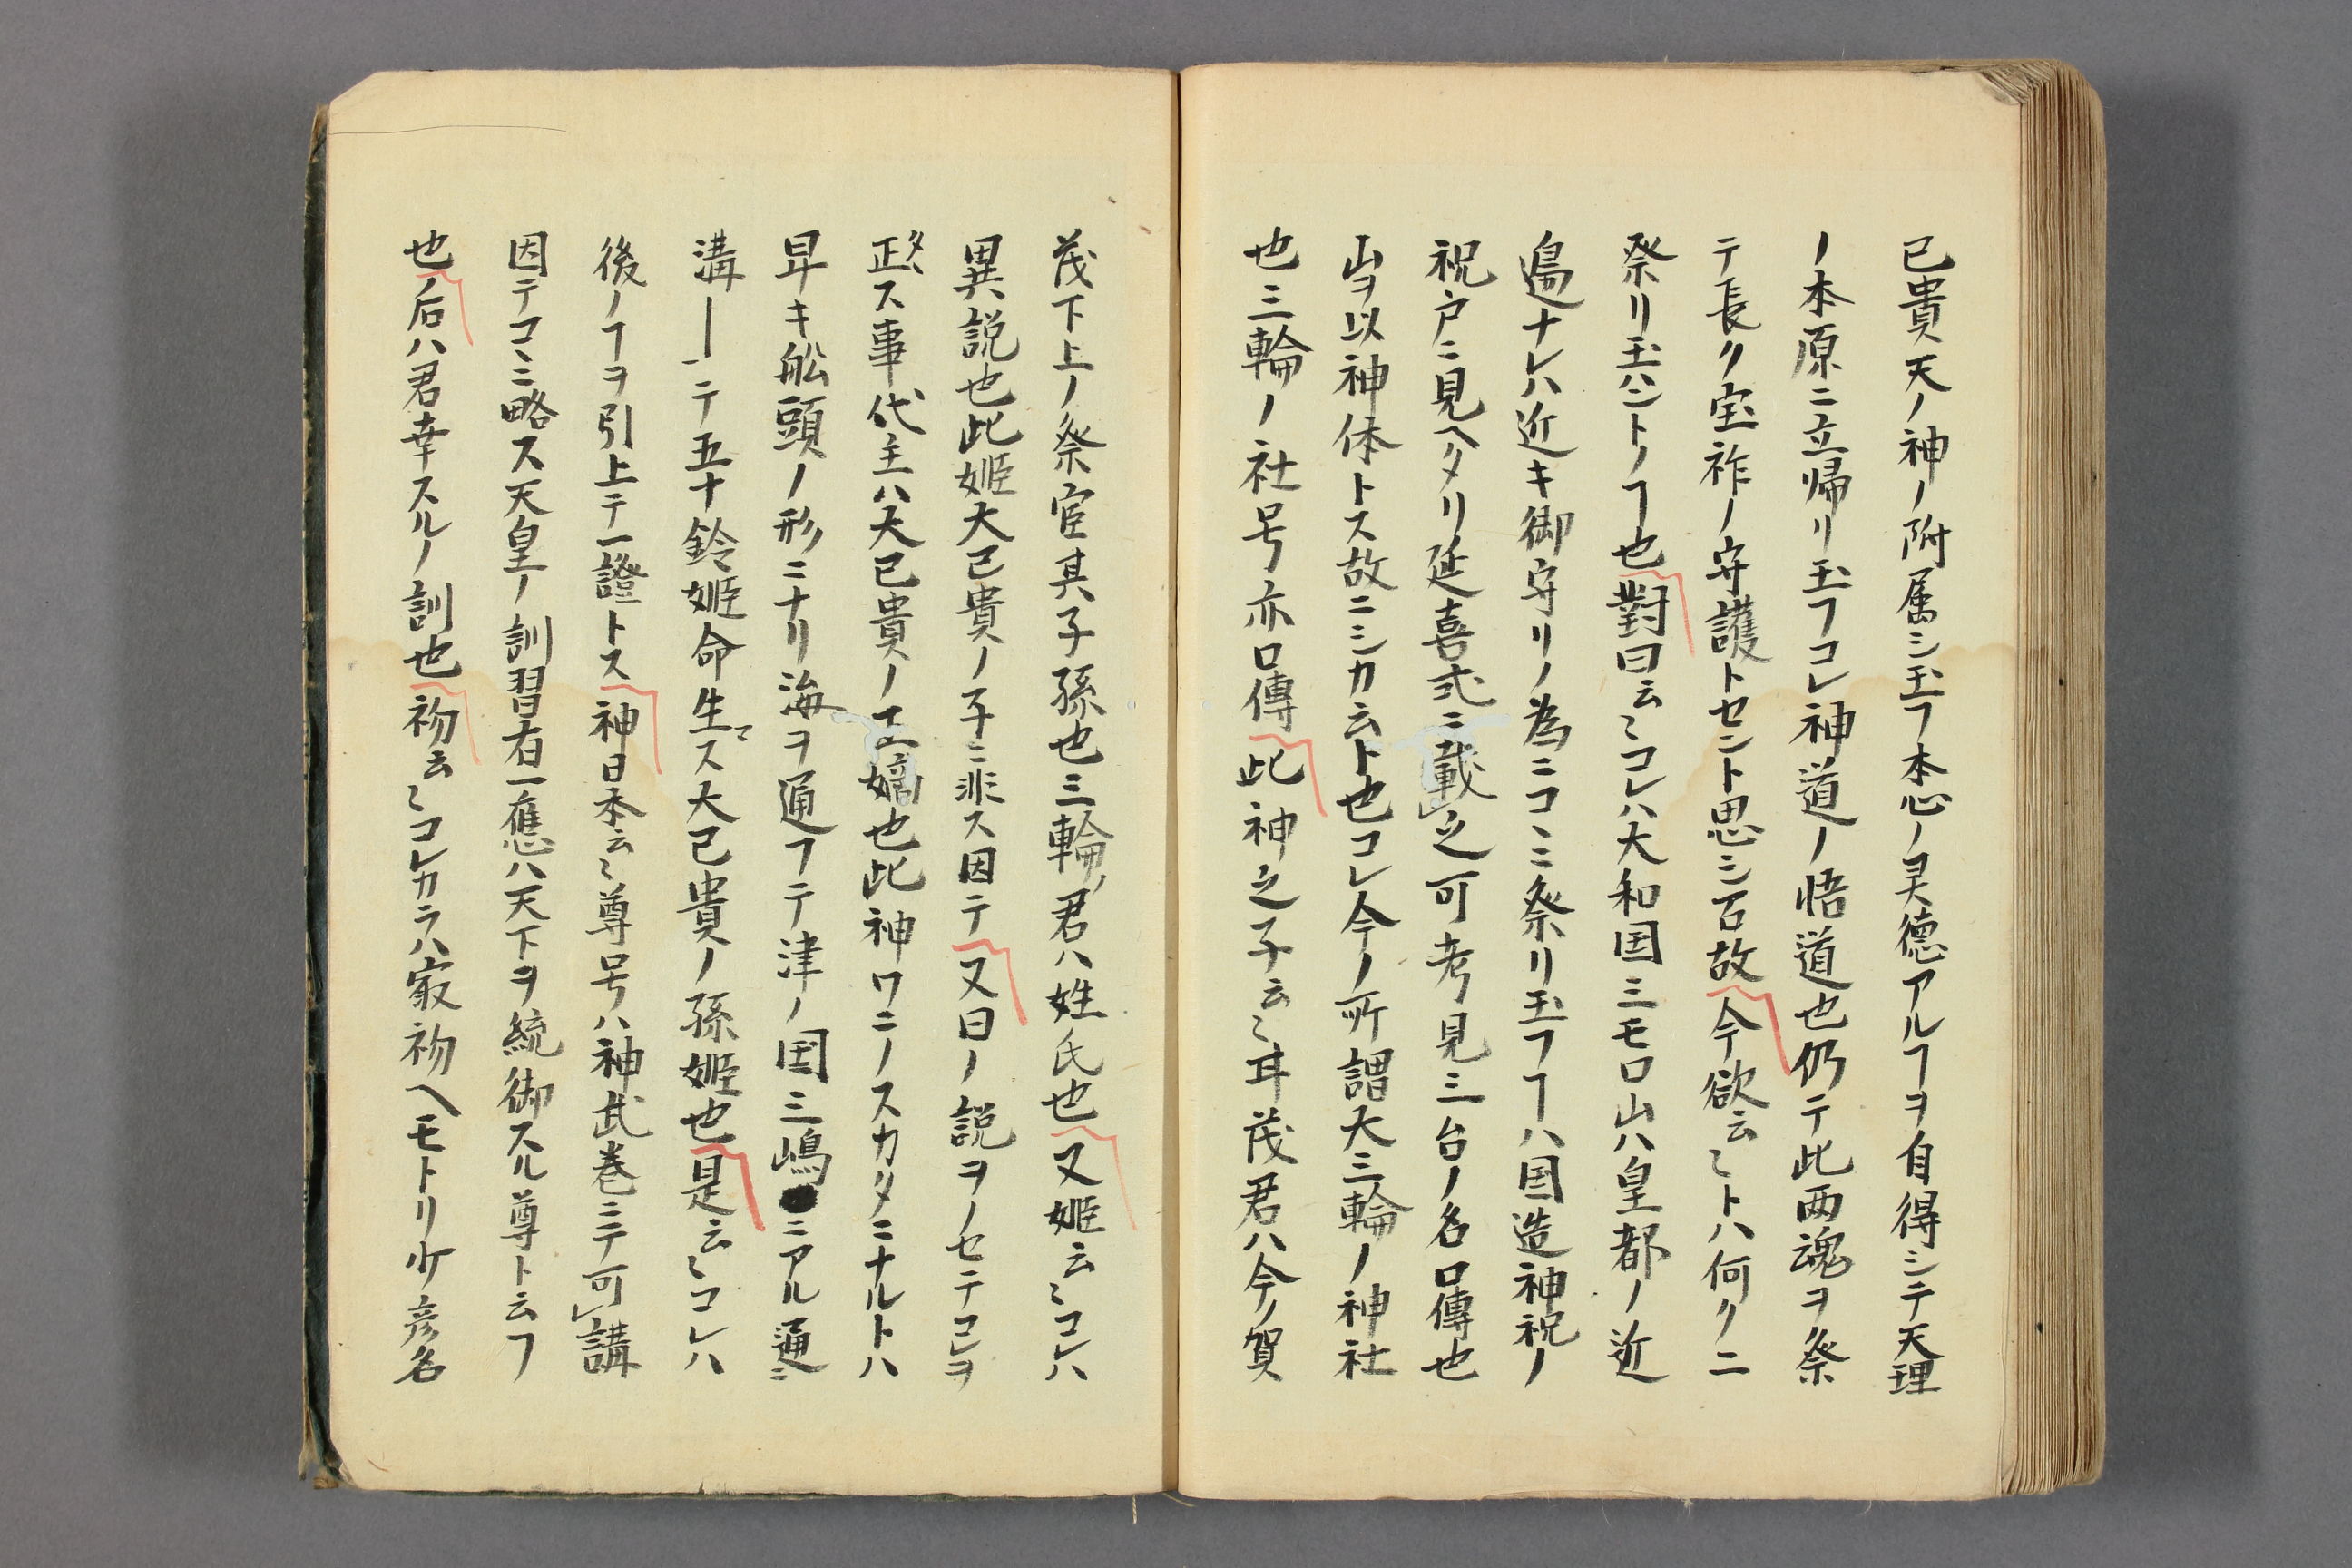 已貴天ノ神ノ附属シ玉フ本心ノ灵德アルヿヲ自得シテ天理
ノ本原ニ立帰リ玉フコレ神道ノ悟道也仍テ此両魂ヲ祭
テ長ク宝祚ノ守護トセント思シ召故今欲云〻トハ何クニ
祭リ玉ハントノヿ也對曰云〻コレハ大和国三モロ山ハ皇都ノ近
邊ナレハ近キ御守リノ為ニコヽニ祭リ玉フヿハ国造神祝ノ
祝戸ニ見ヘタリ延喜式ニ載之可考見三台ノ名口傳也
山ヲ以神体トス故ニシカ云ト也コレ今ノ所謂大三輪ノ神社
也三輪ノ社号亦口傳此神之子云〻耳茂君ハ今ノ賀
茂下上ノ祭官其子孫也三輪ノ君ハ姓氏也又姫云〻コレハ
異説也此姫大已貴ノ子ニ非ス因テ又曰ノ説ヲノセテコレヲ
正タヽス事代主ハ大已貴ノ正嫡也此神ワニノスカタニナルトハ
早キ舩頭ノ形ニナリ海ヲ通フテ津ノ国三嶋ニアル通ニ
溝――テ五十鈴姫命生マス大已貴ノ孫姫也是云〻コレハ
後ノヿヲ引上テ一證トス神日本云〻尊号ハ神武巻ニテ可講
因テコヽニ略ス天皇ノ訓習有一應ハ天下ヲ統御スル尊ト云フ
也ノ后ハ君幸スルノ訓也初云〻コレカラハ㝡初ヘモトリ少彦名